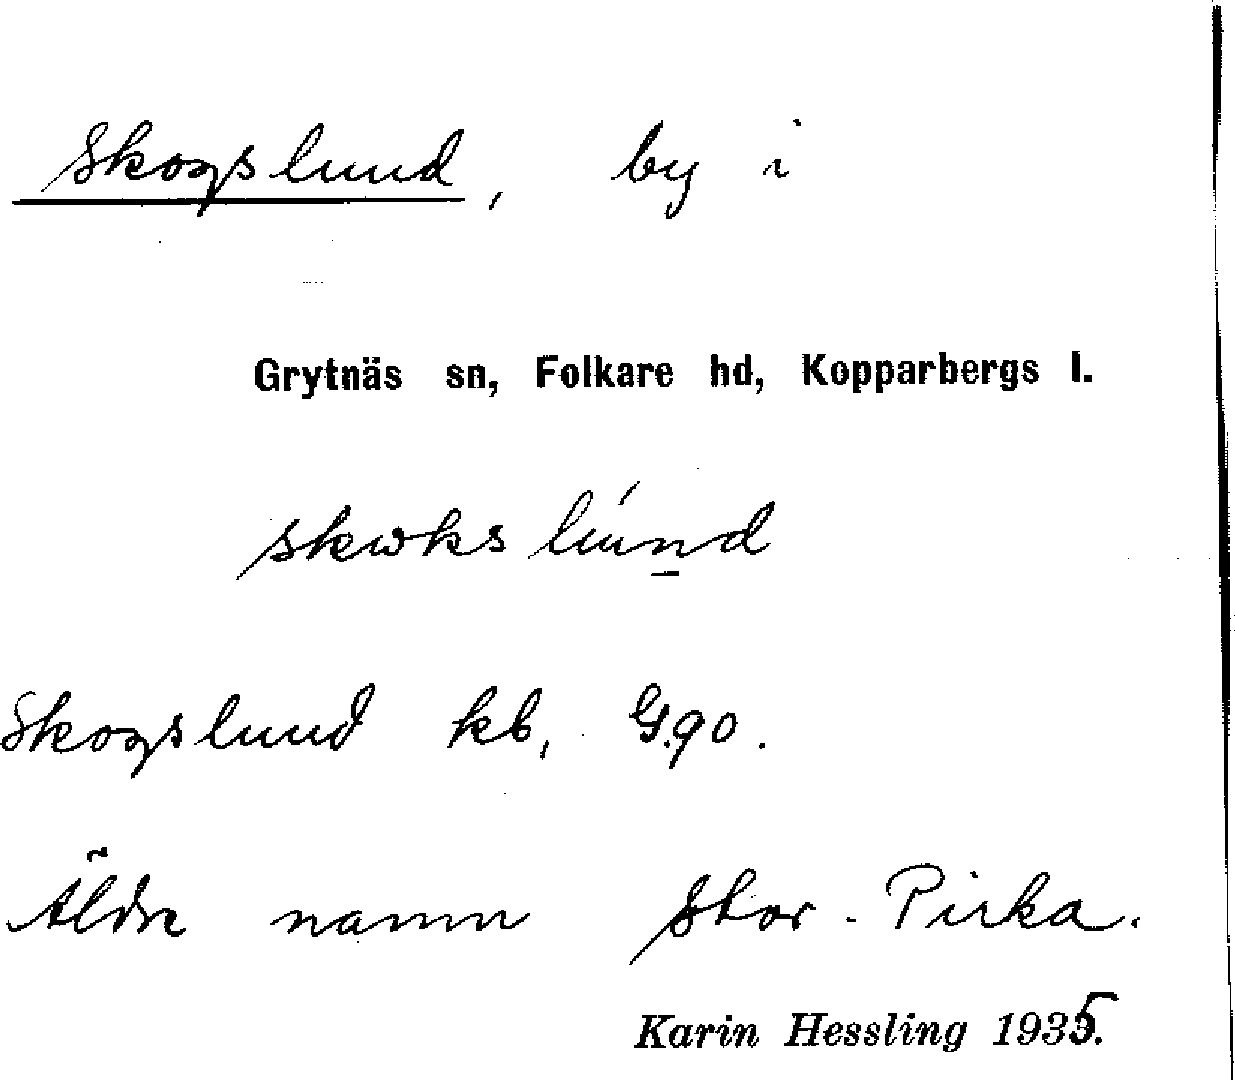 Skogslund, by i
Grytnäs sn, Folkare hd, Kopparbergs l.
skωkslúnd
Skogslund kb, G.90.
Äldre namn Stor-Pirka.
Karin Hessling 1935.